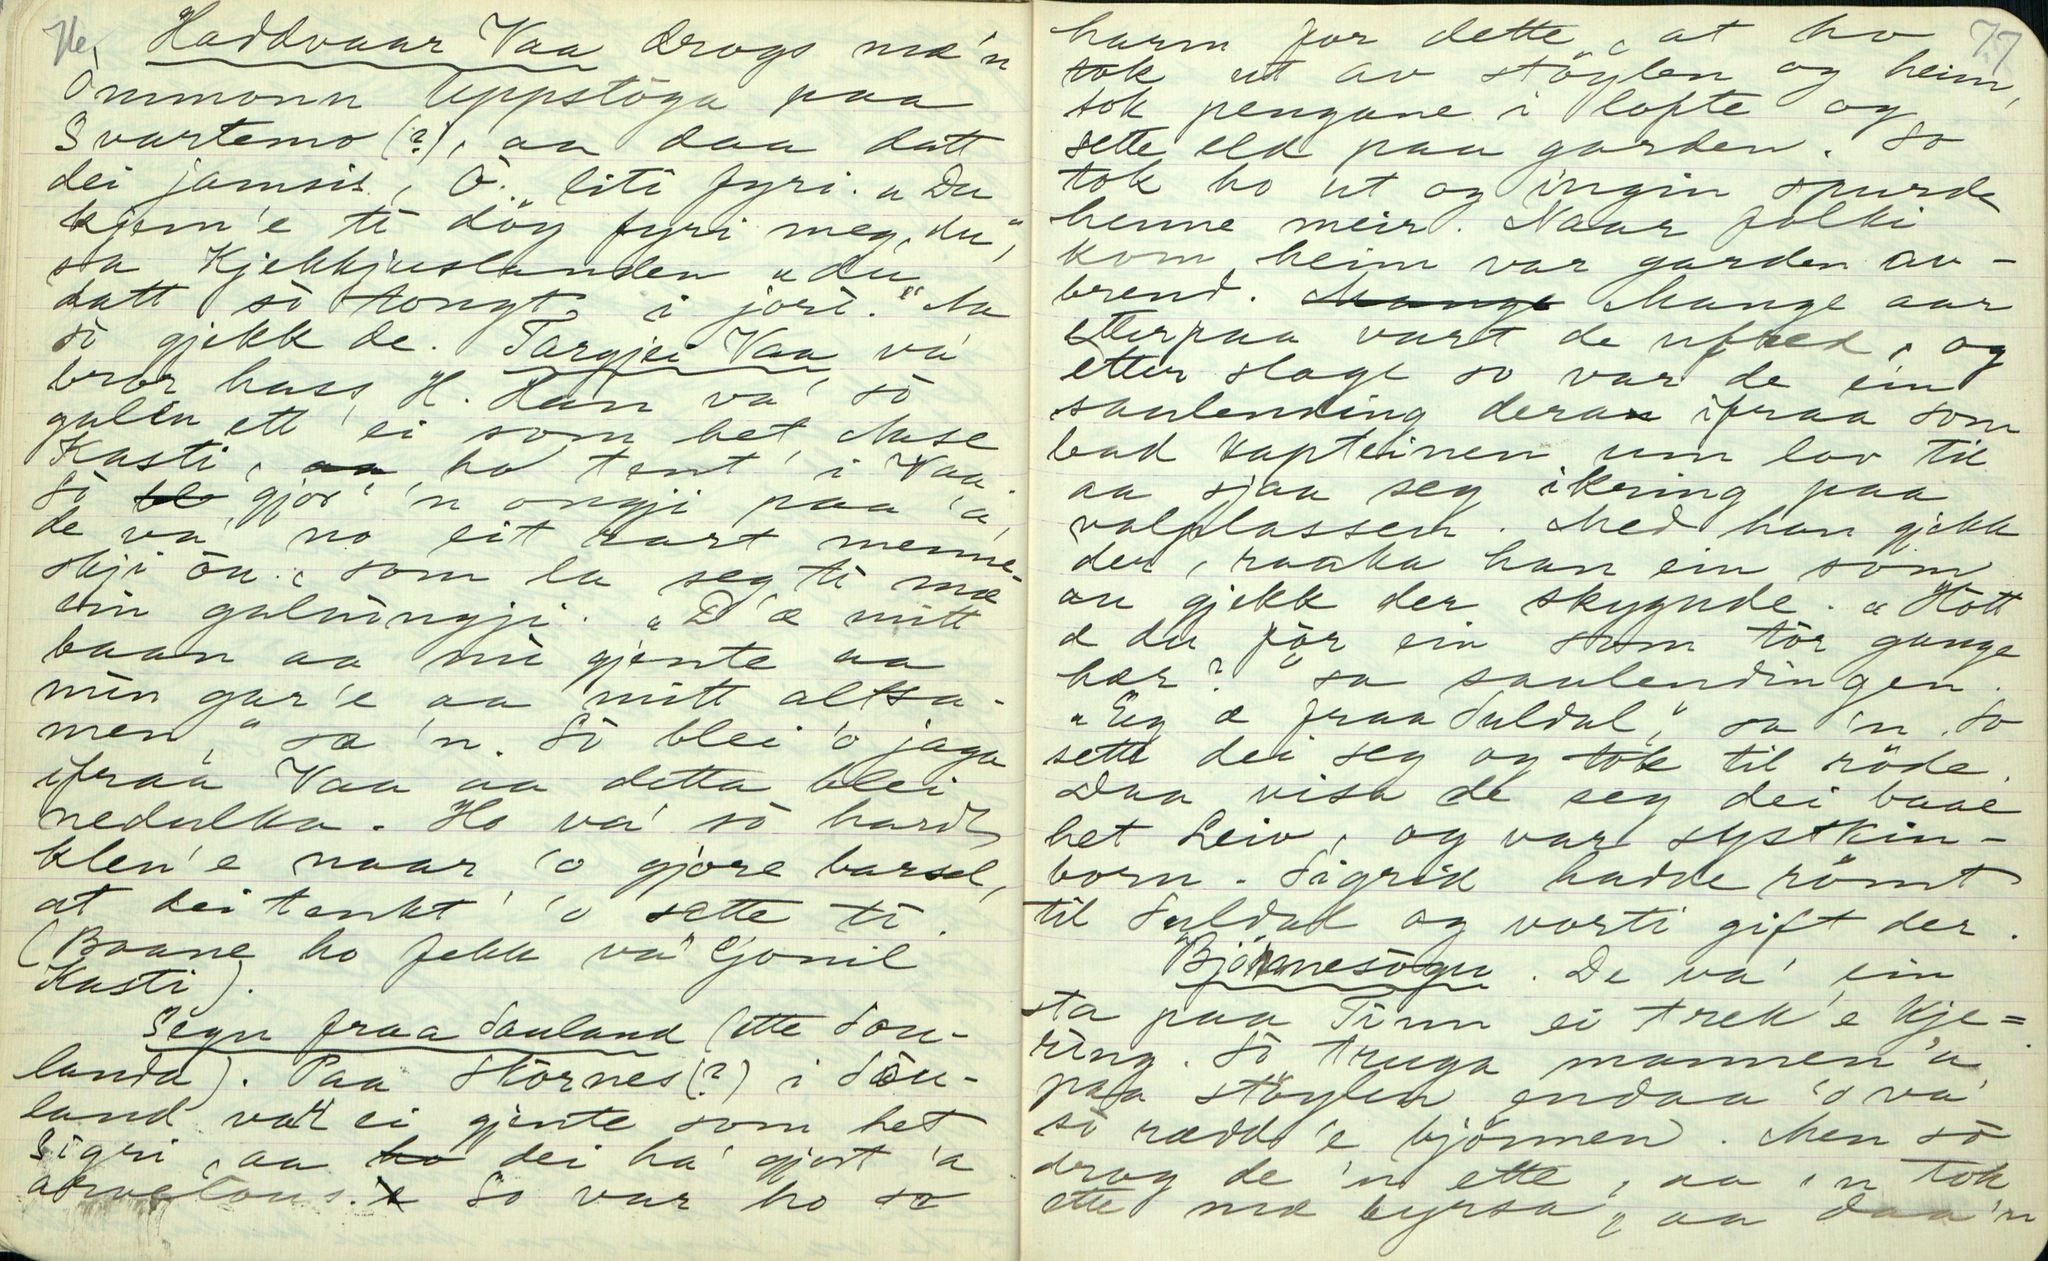 76
Haddvaar Vaa drogs mæ'n
Ommonn Uppstöga paa
Svartemo (?), aa daa datt
dei jamsis, Ò. liti fyri. "Du
kjem'e ti döy fyri meg, du",
sa Kjekkjuslanden "du
datt sò tongt i jori." Aa
sò gjekk de. Targjei Vaa va'
bror hass H. Han va' sò
galen ett 'ei som het Aase
Kasti, aa ho tent' i Vaa.
Sò gjor' 'n ongji paa 'a,
de va' no eit rart menne-
skji òu, som la seg ti mæ
ein galningji. "D'æ mitt
baan aa mi gjente aa
min gar'e aa mitt altsa-
men," sa 'n. Sò blei 'o jaga
ifraa Vaa aa detta blei
nedulka. Ho va' sò hardt
klen'e naar 'o gjore barsel,
at dei tenkt' 'o sette ti.
(Baane ho fekk va' Gonil
Kasti).
Segn fraa Sauland (ette Sou-
landa). Paa Stòrnes (?) i Sòu-
land var ei gjente som het
Sigri, aa ho dei ha' gjort 'a
arvelaus. So var ho so
77
harm for dette, at ho
tok ut av stöylen og heim,
tok pengane i lofte og
sette eld paa garden. So
tok ho ut og ingin spurde
henne meir. Naar folki
kom heim var garden av-
brend. Mange Mange aar
etterpaa vart de ufred, og
etter slage so var de ein
saulending dera ifraa som
bad kapteinen um lov til
aa sjaa seg ikring paa
valplassen. Med han gjekk
der, raaka han ein som
au gjekk der skygnde. "Hòtt
æ du fòr ein som tòr gange
hær?" sa saulendingen.
"Eg æ fraa Suldal," sa 'n. So
sette dei seg og tok til röde.
Daa visa de seg dei baae
het Leiv, og var syskin-
born. Sigrid hadde römt
til Suldal og vorti gift der.
Björnnesògu. De va' ein
sta paa Tinn ei trek'e kje=
ring. Sò truga mannen 'a
paa stöylen endaa 'o va'
sò rædd'e björnen. Men sò
drog de 'n ette, aa 'n tok
ette mæ byrsa, aa daa 'n